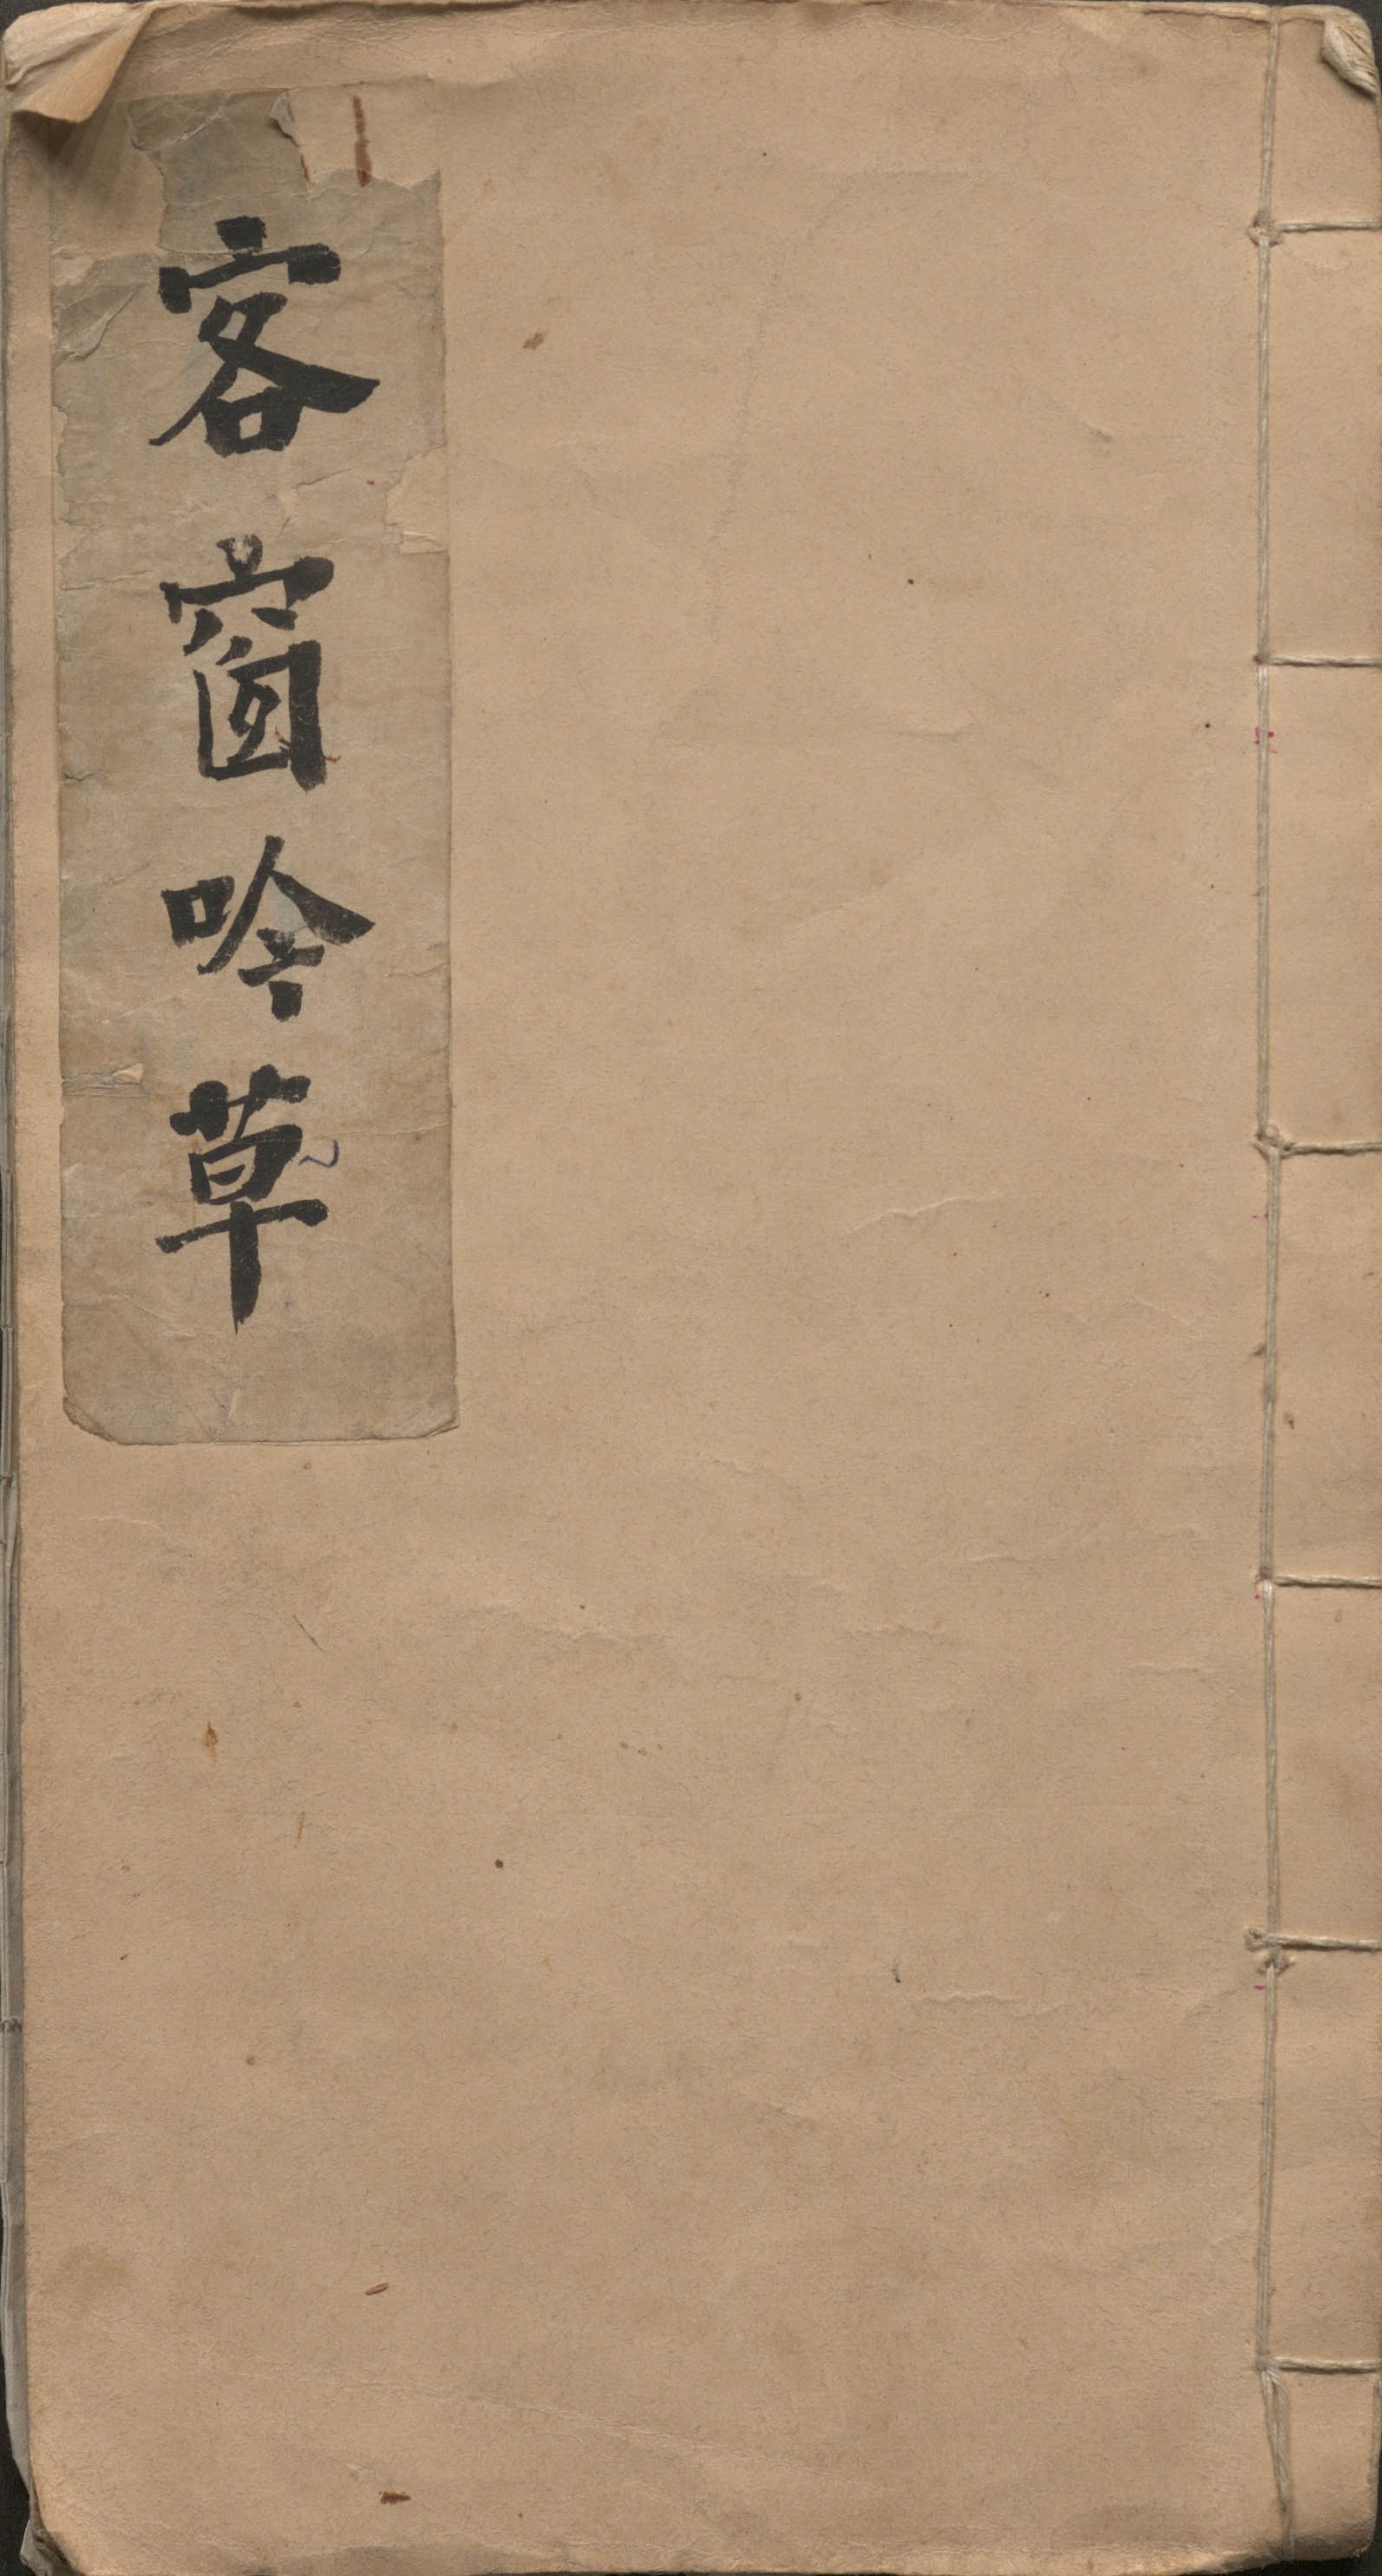 客窗吟草